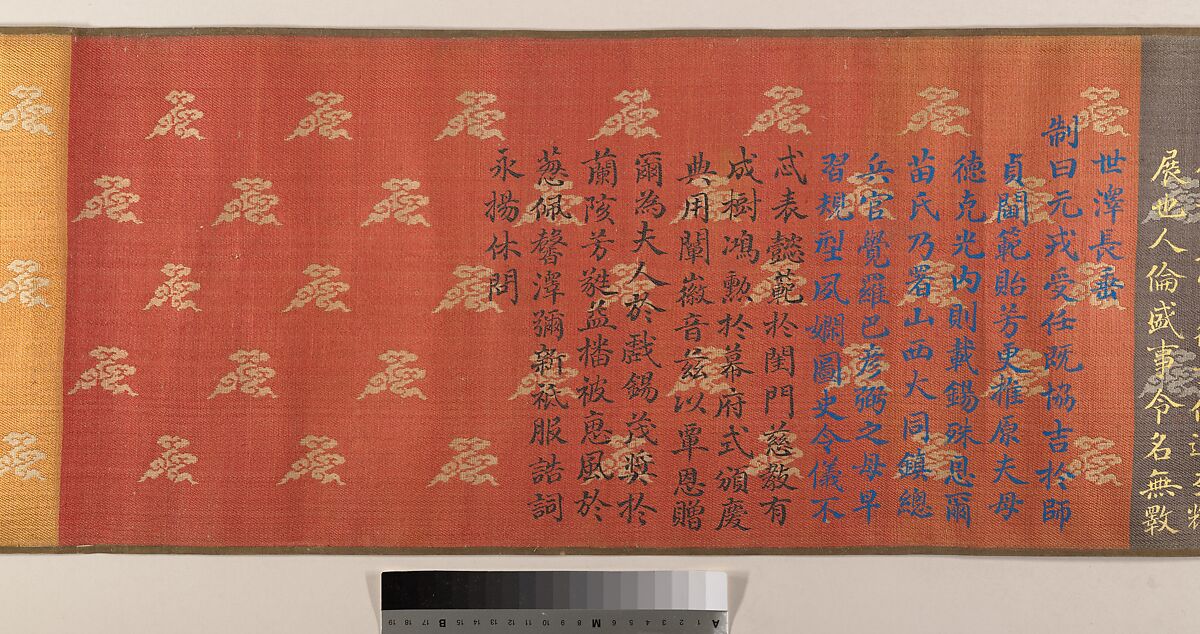 展世人倫盛事令名無斁
世澤長垂
制曰元戎受任既協吉於師
貞閫範貽芳更推原夫母
德克光內則載錫殊恩爾
苗氏乃署山西大同鎮總
兵官覺羅巴彥弼之母早
習規型夙嫻圖史令儀不
忒表懿範於閨門慈教有
成樹鴻勲於幕府式頒慶
典用闡徽音茲以覃恩贈
爾為夫人於戲錫茂奨於
蘭陔芳蕤益播被惠風於
蔥佩馨澤彌新祗服誥詞
永揚休問